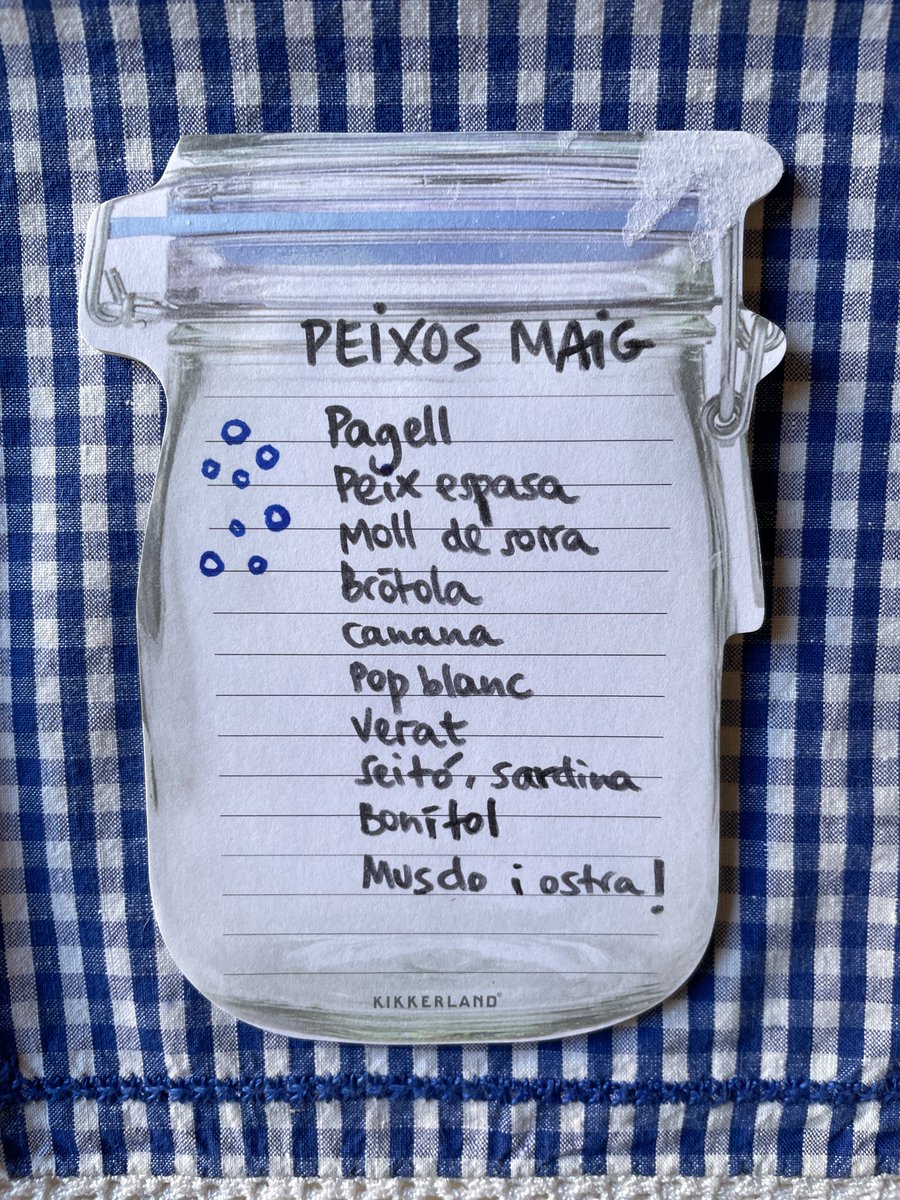 PEIXOS MAIG
Pagell
Peix espasa
Moll de sorra
Brótola
canana
Pop blanc
Verat
Seitó, sardina
Bonítol
Musclo i ostra!
KIKKERLAND®